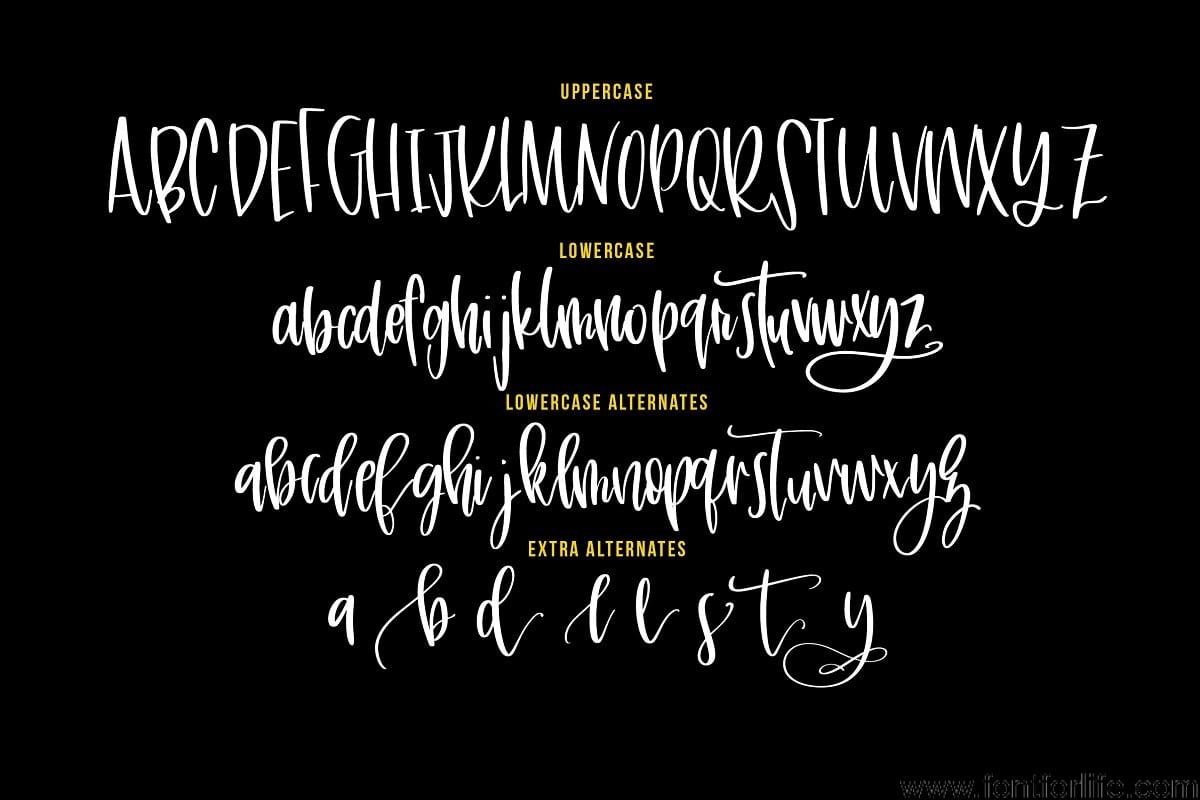 UPPERCASE
ABCDEFGHIJKLMNOPQRSTUVWXYZ
LOWERCASE
abcdefghijklmnopqrstuvwxyz
LOWERCASE ALTERNATES
abcdefghijklmnopqrstuvwxyz
EXTRA ALTERNATES
a b d l l s t y
www.fontforlife.com